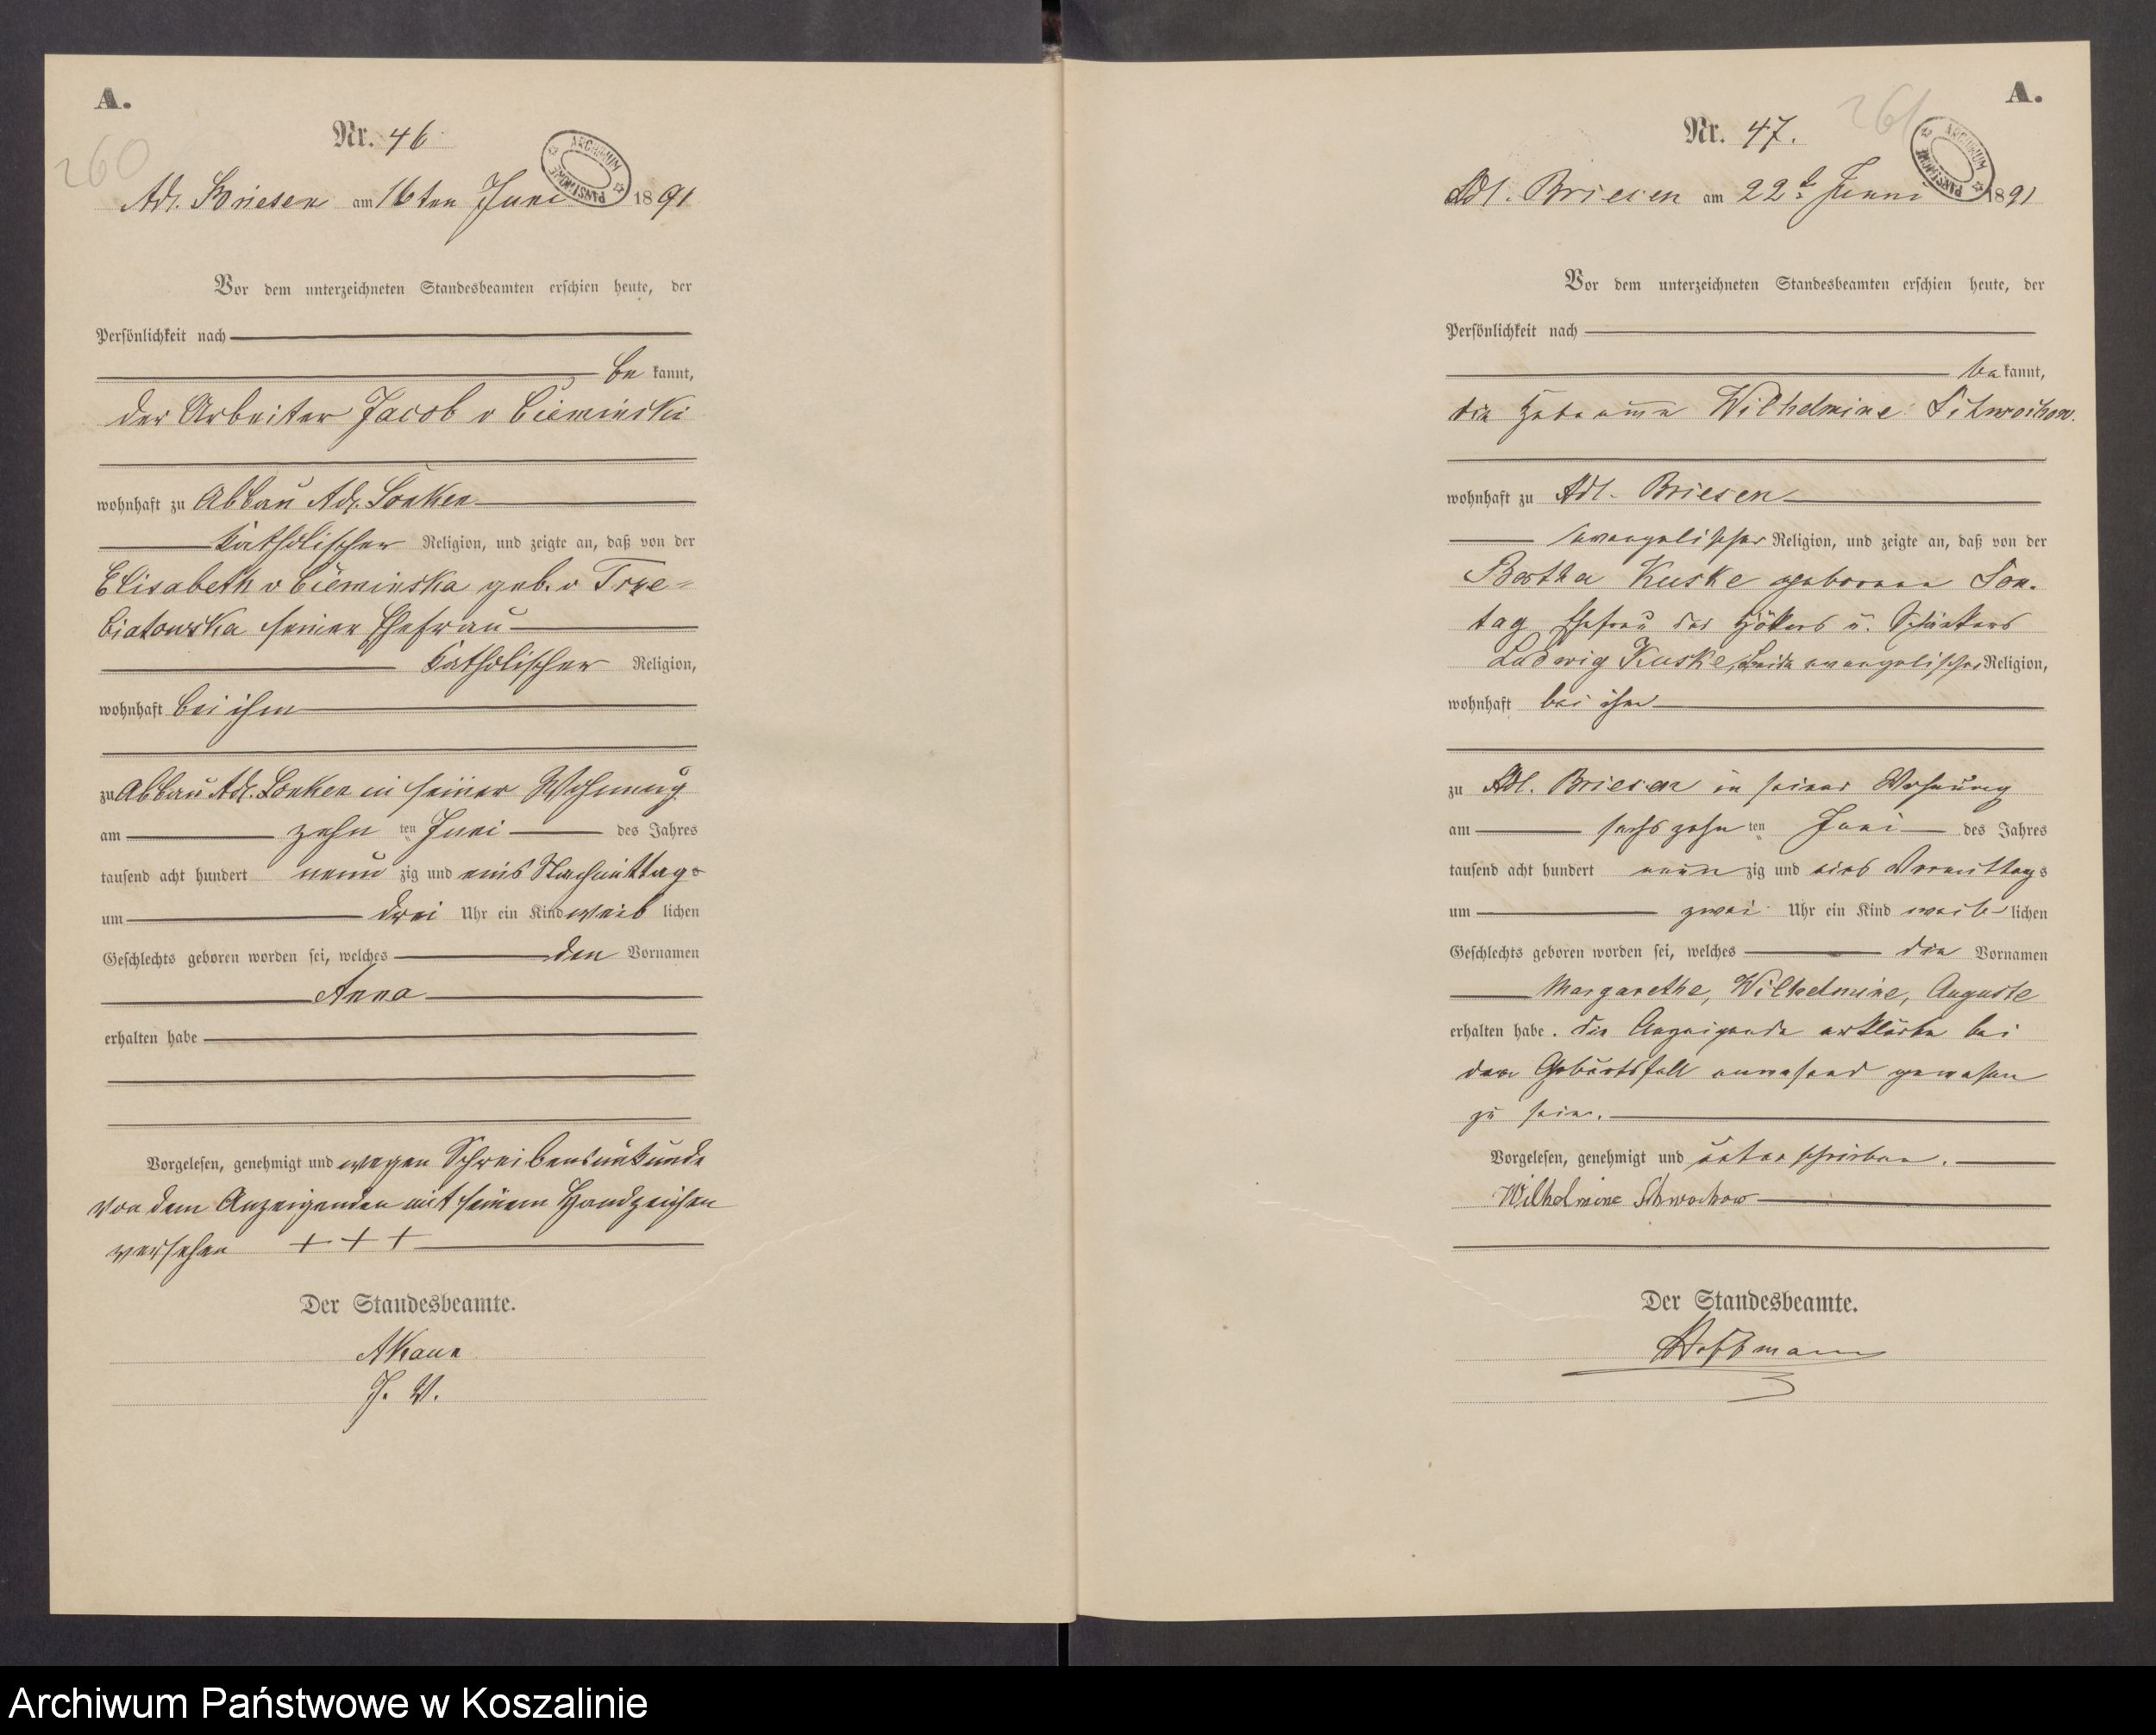 A.
260
Nr. 46
ARCHIWUM PAŃSTWOWE
Adl. Briesen am 16ten Juni 1891
Vor dem unterzeichneten Standesbeamten erschien heute, der
Persönlichkeit nach
be kannt,
der Arbeiter Jacob v Cieminski
wohnhaft zu Abbau Adl. Lonken
katholischer Religion, und zeigte an, daß von der
Elisabeth v Cieminska geb. v Trze=
biatowska seiner Ehefrau
katholischer Religion,
wohnhaft bei ihm
zu Abbau Adl. Lonken in seiner Wohnung
am zehn ten Juni des Jahres
tausend acht hundert neun zig und eins Nachmittags
um drei Uhr ein Kind weib lichen
Geschlechts geboren worden sei, welches den Vornamen
Anna
erhalten habe
Vorgelesen, genehmigt und wegen Schreibensunkunde
von dem Anzeigenden mit seinem Handzeichen
versehen + + +
Der Standesbeamte.
J. V.
A.
261
Nr. 47.
ARCHIWUM PAŃSTWOWE
Adl. Briesen am 22t Junni 1891
Vor dem unterzeichneten Standesbeamten erschien heute, der
Persönlichkeit nach
be kannt,
die Hebamme Wilhelmine Schwochow.
wohnhaft zu Adl. Briesen
evangelischer Religion, und zeigte an, daß von der
Bertha Kuske geborene Son.
tag Ehefrau des Hökers u. Schänkers
Ludwig Kuske, beide evangelischer Religion,
wohnhaft bei ihm
zu Adl. Briesen in seiner Wohnung
am sechs zehn ten Juni des Jahres
tausend acht hundert neun zig und eins Vormittags
um zwei Uhr ein Kind weib lichen
Geschlechts geboren worden sei, welches die Vornamen
Margarethe, Wilhelmine, Auguste
erhalten habe. Die Anzeigende erklärte bei
dem Geburtsfall anwesend gewesen
zu sein.
Vorgelesen, genehmigt und unterschrieben.
Wilhelmine Schwochow
Der Standesbeamte.
Hoffmann
Archiwum Państwowe w Koszalinie